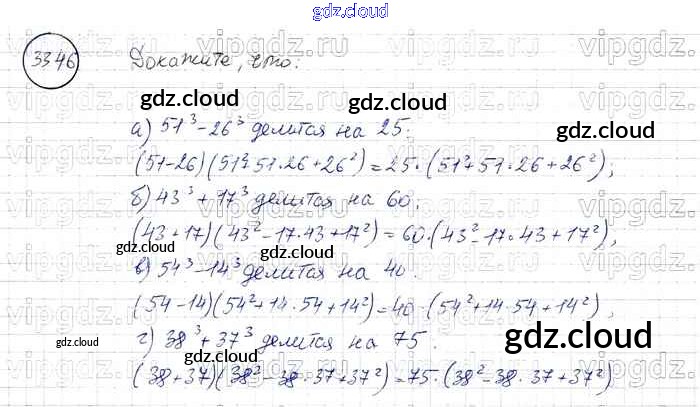 gdz.cloud
33.46 Докажите, что:
gdz.cloud gdz.cloud
а) 51³-26³ делится на 25:
(51-26)(51²+51·26+26²)=25·(51²+51·26+26²),
б) 43³+17³ делится на 60.
(43+17)(43²-17·43+17²)=60·(43²-17·43+17²),
gdz.cloud gdz.cloud
в) 54³-14³ делится на 40.
(54-14)(54²+14·54+14²)=40·(54²+14·54+14²),
gdz.cloud gdz.cloud gdz.cloud
г) 38³+37³ делится на 75.
(38+37)(38²-38·37+37²)=75·(38²-38·37+37²)